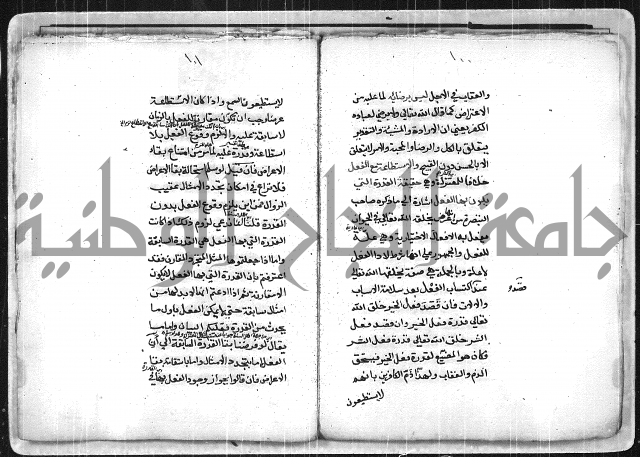 ١٠٠
والعقاب في الآجل ليس برضائه لما عليه من
الاعتراض كما قال الله تعالى ولا يرضى لعباده
الكفر يعني ان الارادة والمشية والتقدير
يتعلق بالكل والرضا والمحبة والامر لا يتعلق
الا بالحسن دون القبيح والاستطاعة مع الفعل
خلافا للمعتزلة وهي حقيقة القدرة التي
يكون بها الفعل اشارة الى ما ذكره صاحب
التبصرة من انها عرض يخلقه الله تعالى في الحيوان
يفعل به الافعال الاختيارية وهي علة
للفعل والجمهور على انها شرط لاداء الفعل
لا علة وبالجملة هي صفة يخلقها الله تعالى
عند اكتساب الفعل بعد سلامة الاسباب
والآلات فان قصد فعل الخير خلق الله
تعالى قدرة فعل الخير وان قصد فعل
الشر خلق الله تعالى قدرة فعل الشر
فكان هو المضيع لقدرة فعل الخير فيستحق
الذم والعقاب ولهذا ذم الكافرين بانهم
لا يستطيعون
١٠١
لا يستطيعون السمع واذا كان الاستطاعة
عرضا وجب ان تكون مقارنة للفعل بالزمان
لا سابقة عليه والا لزم وقوع الفعل بلا
استطاعة وقدرة عليه لما مر من امتناع بقاء
الاعراض فان قيل لو سلم استحالة بقاء الاعراض
فلا نزاع في امكان تجدد الامثال عقيب
الزوال فمن اين يلزم وقوع الفعل بدون
القدرة قلنا انما ندعي لزوم ذلك اذا كانت
القدرة التي بها الفعل هي القدرة السابقة
واما اذا جعلتموها المثل المتجدد المقارن فقد
اعترفتم بان القدرة التي بها الفعل لا يكون
الا مقارنة ثم اذا ادعيتم انه لا بد لها من
امثال سابقة حتى لا يمكن الفعل باول ما
يحدث من القدرة فعليكم البيان واما ما
يقال لو فرضنا بقاء القدرة السابقة الى آن
الفعل اما بتجدد الامثال واما باستقامة بقاء
الاعراض فان قالوا بجواز وجود الفعل بها في